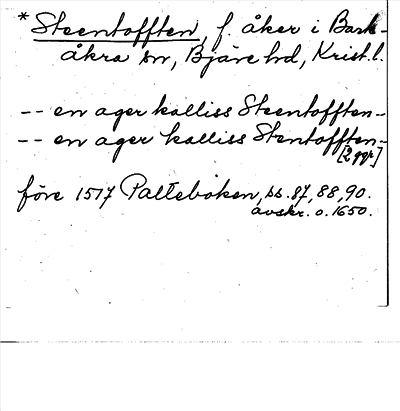 * Steentofften, f. åker i Bark-
åkra sn, Bjäre hd, Krist. l.
-- en ager kalliss Steentofften-
-- en ager kalliss Stentofften-
[2 ggr]
före 1517 Palteboken, ss. 87, 88, 90.
avskr. o. 1650.